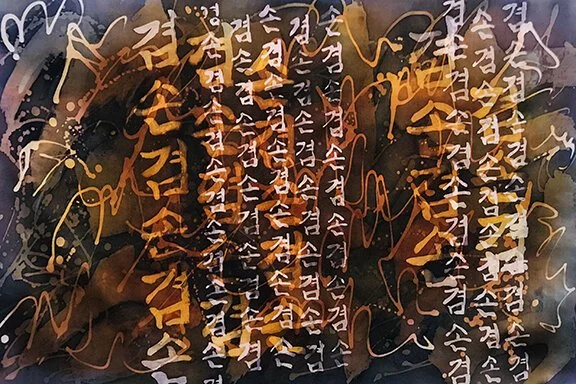 겸손겸손겸손
겸손겸손겸손겸손겸손겸손손
겸손겸손겸손겸손겸손겸
손겸손겸손겸손겸손겸손
겸손겸손겸손겸손겸손겸
손겸손겸손겸손겸손겸손
겸손겸손
겸손겸손겸손겸손겸손겸
손겸손겸손겸손겸손겸손
겸손겸손겸손겸손겸손겸